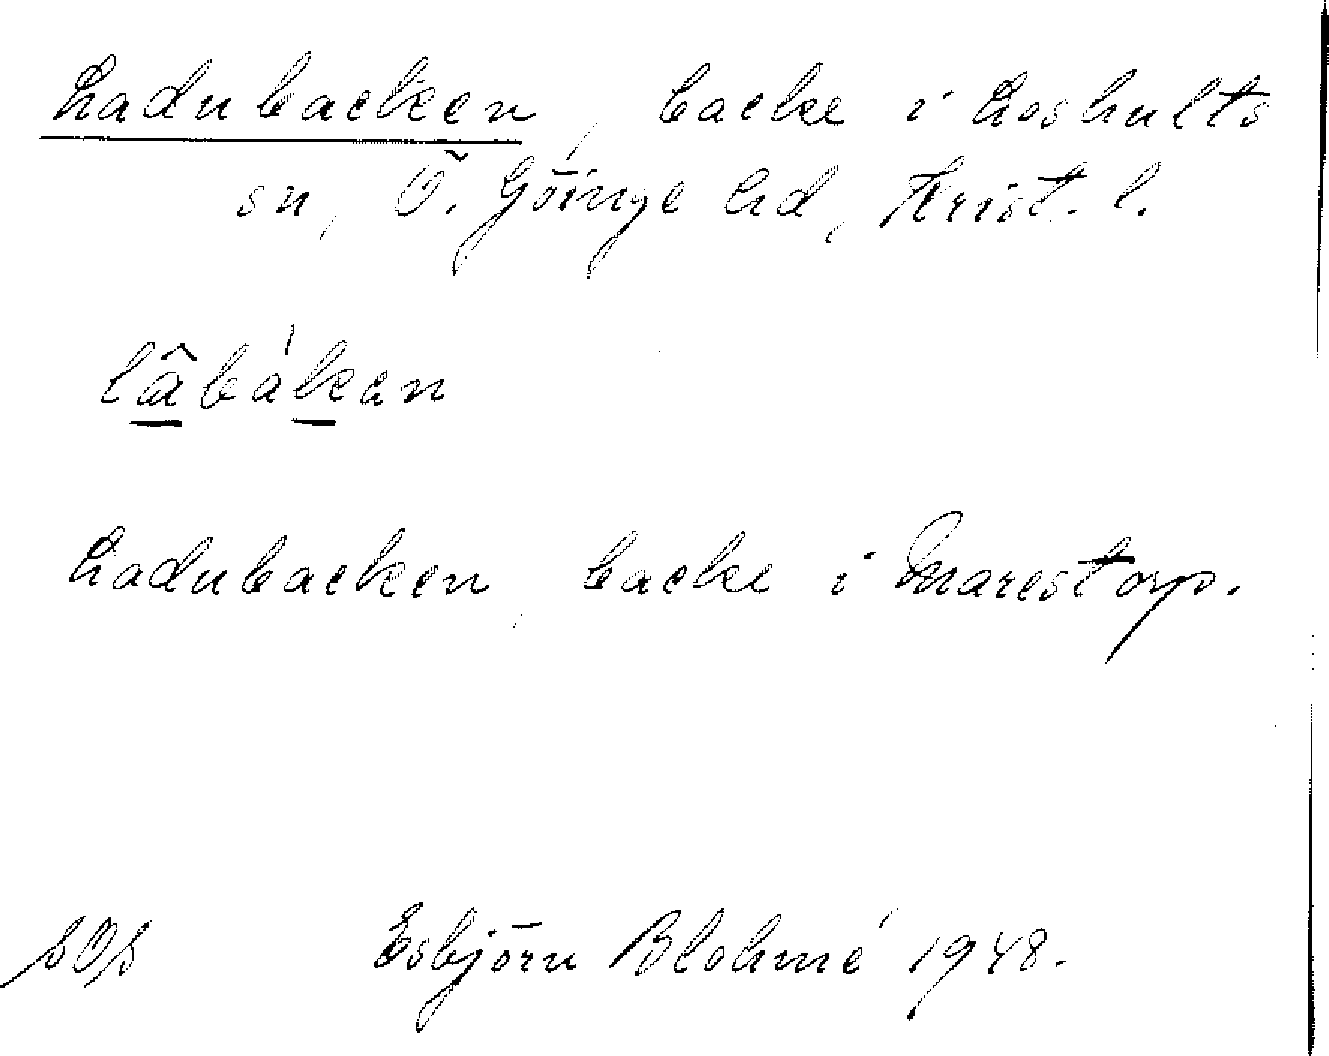 Ladubacken, backe i Loshults
sn, Ö. Göinge hd, Krist. l.
lâbákan
Ladubacken, backe i Marestorp.
Esbjörn Blohmé 1948.